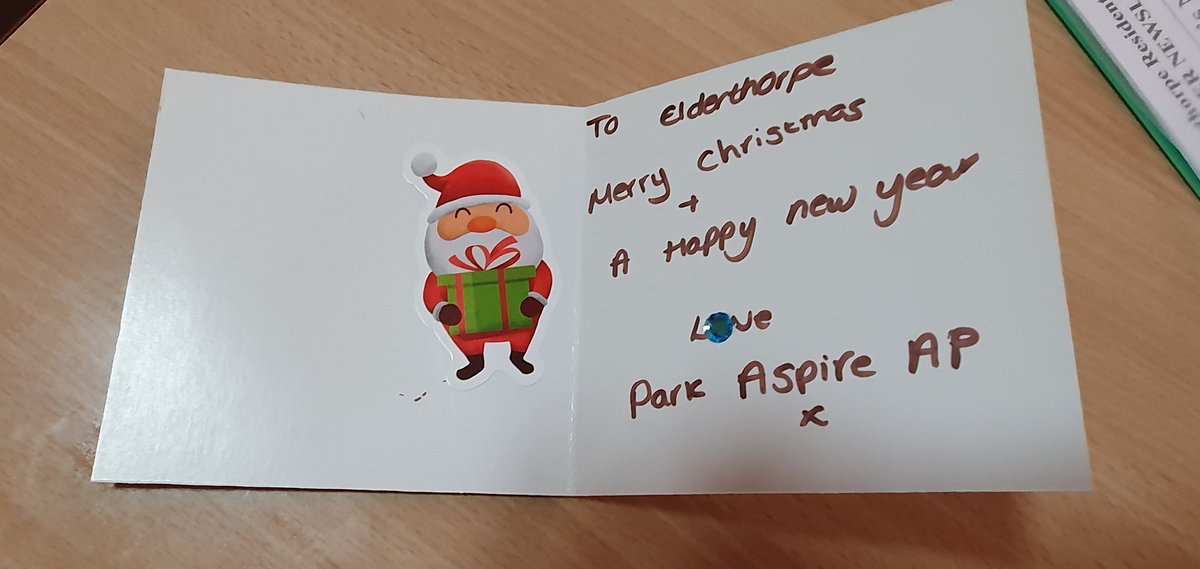 To Elderthorpe
Merry Christmas
+
A Happy new year
Love
Park Aspire AP
x
thorpe Resident
R NEWSL